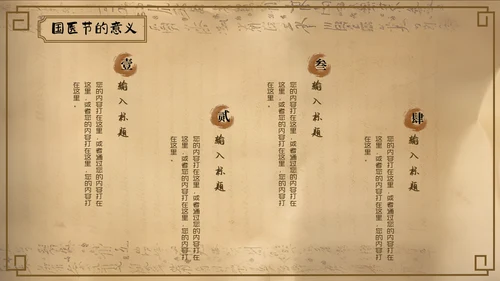 国医节的意义
壹
输入标题
您的内容打在这里，或者通过您的内容打在
这里，或者您的内容打在这里，您的内容打
在这里。
贰
输入标题
您的内容打在这里，或者通过您的内容打在
这里，或者您的内容打在这里，您的内容打
在这里。
叁
输入标题
您的内容打在这里，或者通过您的内容打在
这里，或者您的内容打在这里，您的内容打
在这里。
肆
输入标题
您的内容打在这里，或者通过您的内容打在
这里，或者您的内容打在这里，您的内容打
在这里。